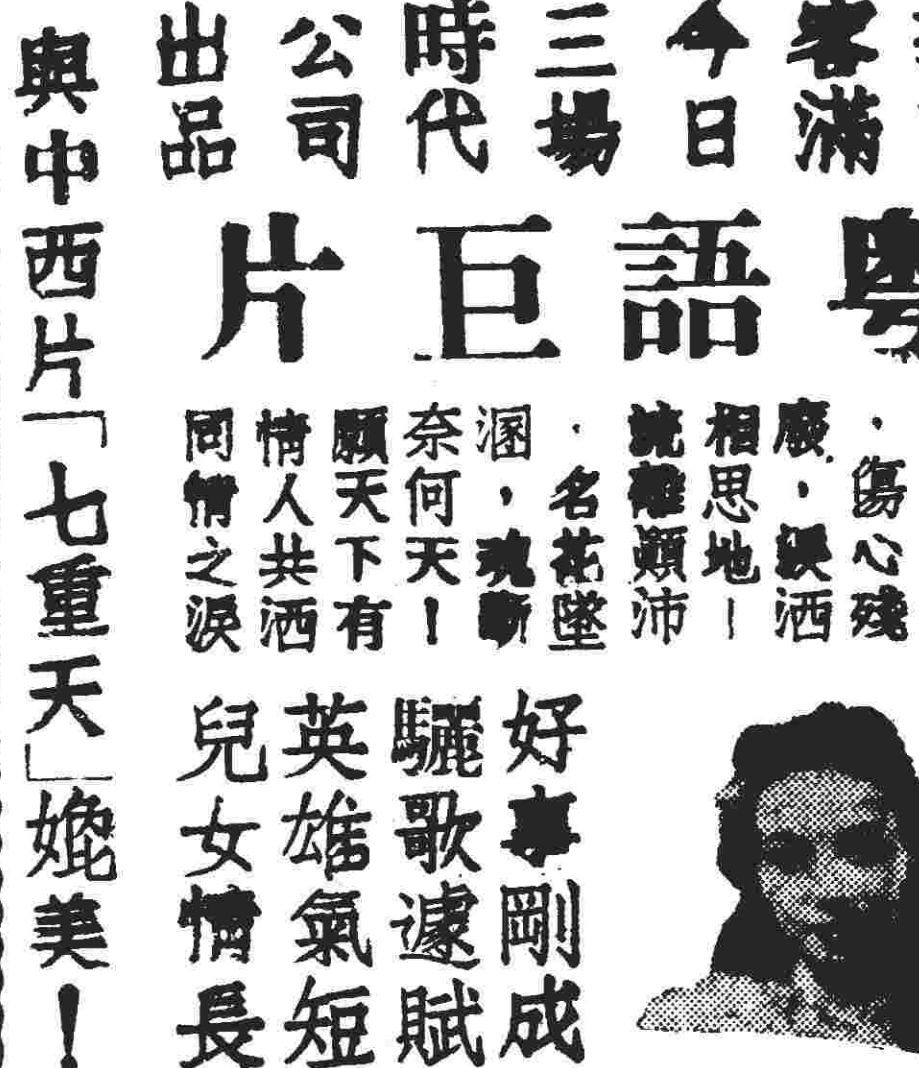 客滿
今日
三場
時代
公司
出品
粵語巨片
・傷心殘
廢，淚洒
相思地—
流離顛沛
・名花墜
溷，魂斷
奈何天！
願天下有
情人共洒
同情之淚
好事剛成
驪歌遽賦
英雄氣短
兒女情長
與中西片「七重天」媲美！